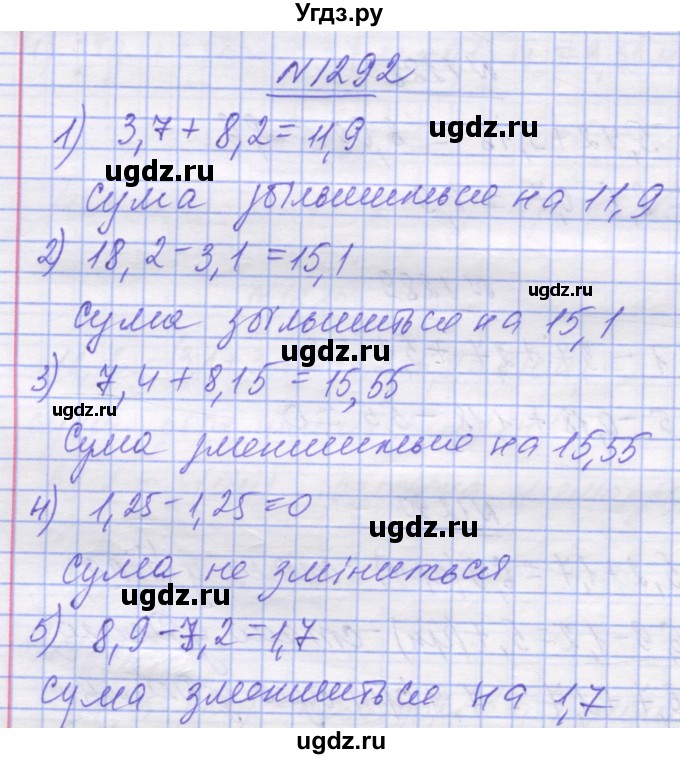 Угдз.ру
N 1292
1) 3,7 + 8,2 = 11,9
угдз.ру
Сума збільшиться на 11,9
2) 18,2 - 3,1 = 15,1
Сума збільшиться на 15,1
3) 7,4 + 8,15 = 15,55
Сума зменшиться на 15,55
4) 1,25 - 1,25 = 0
Сума не зміниться
5) 8,9 - 7,2 = 1,7
Сума зменшиться на 1,7
ugdz.ru